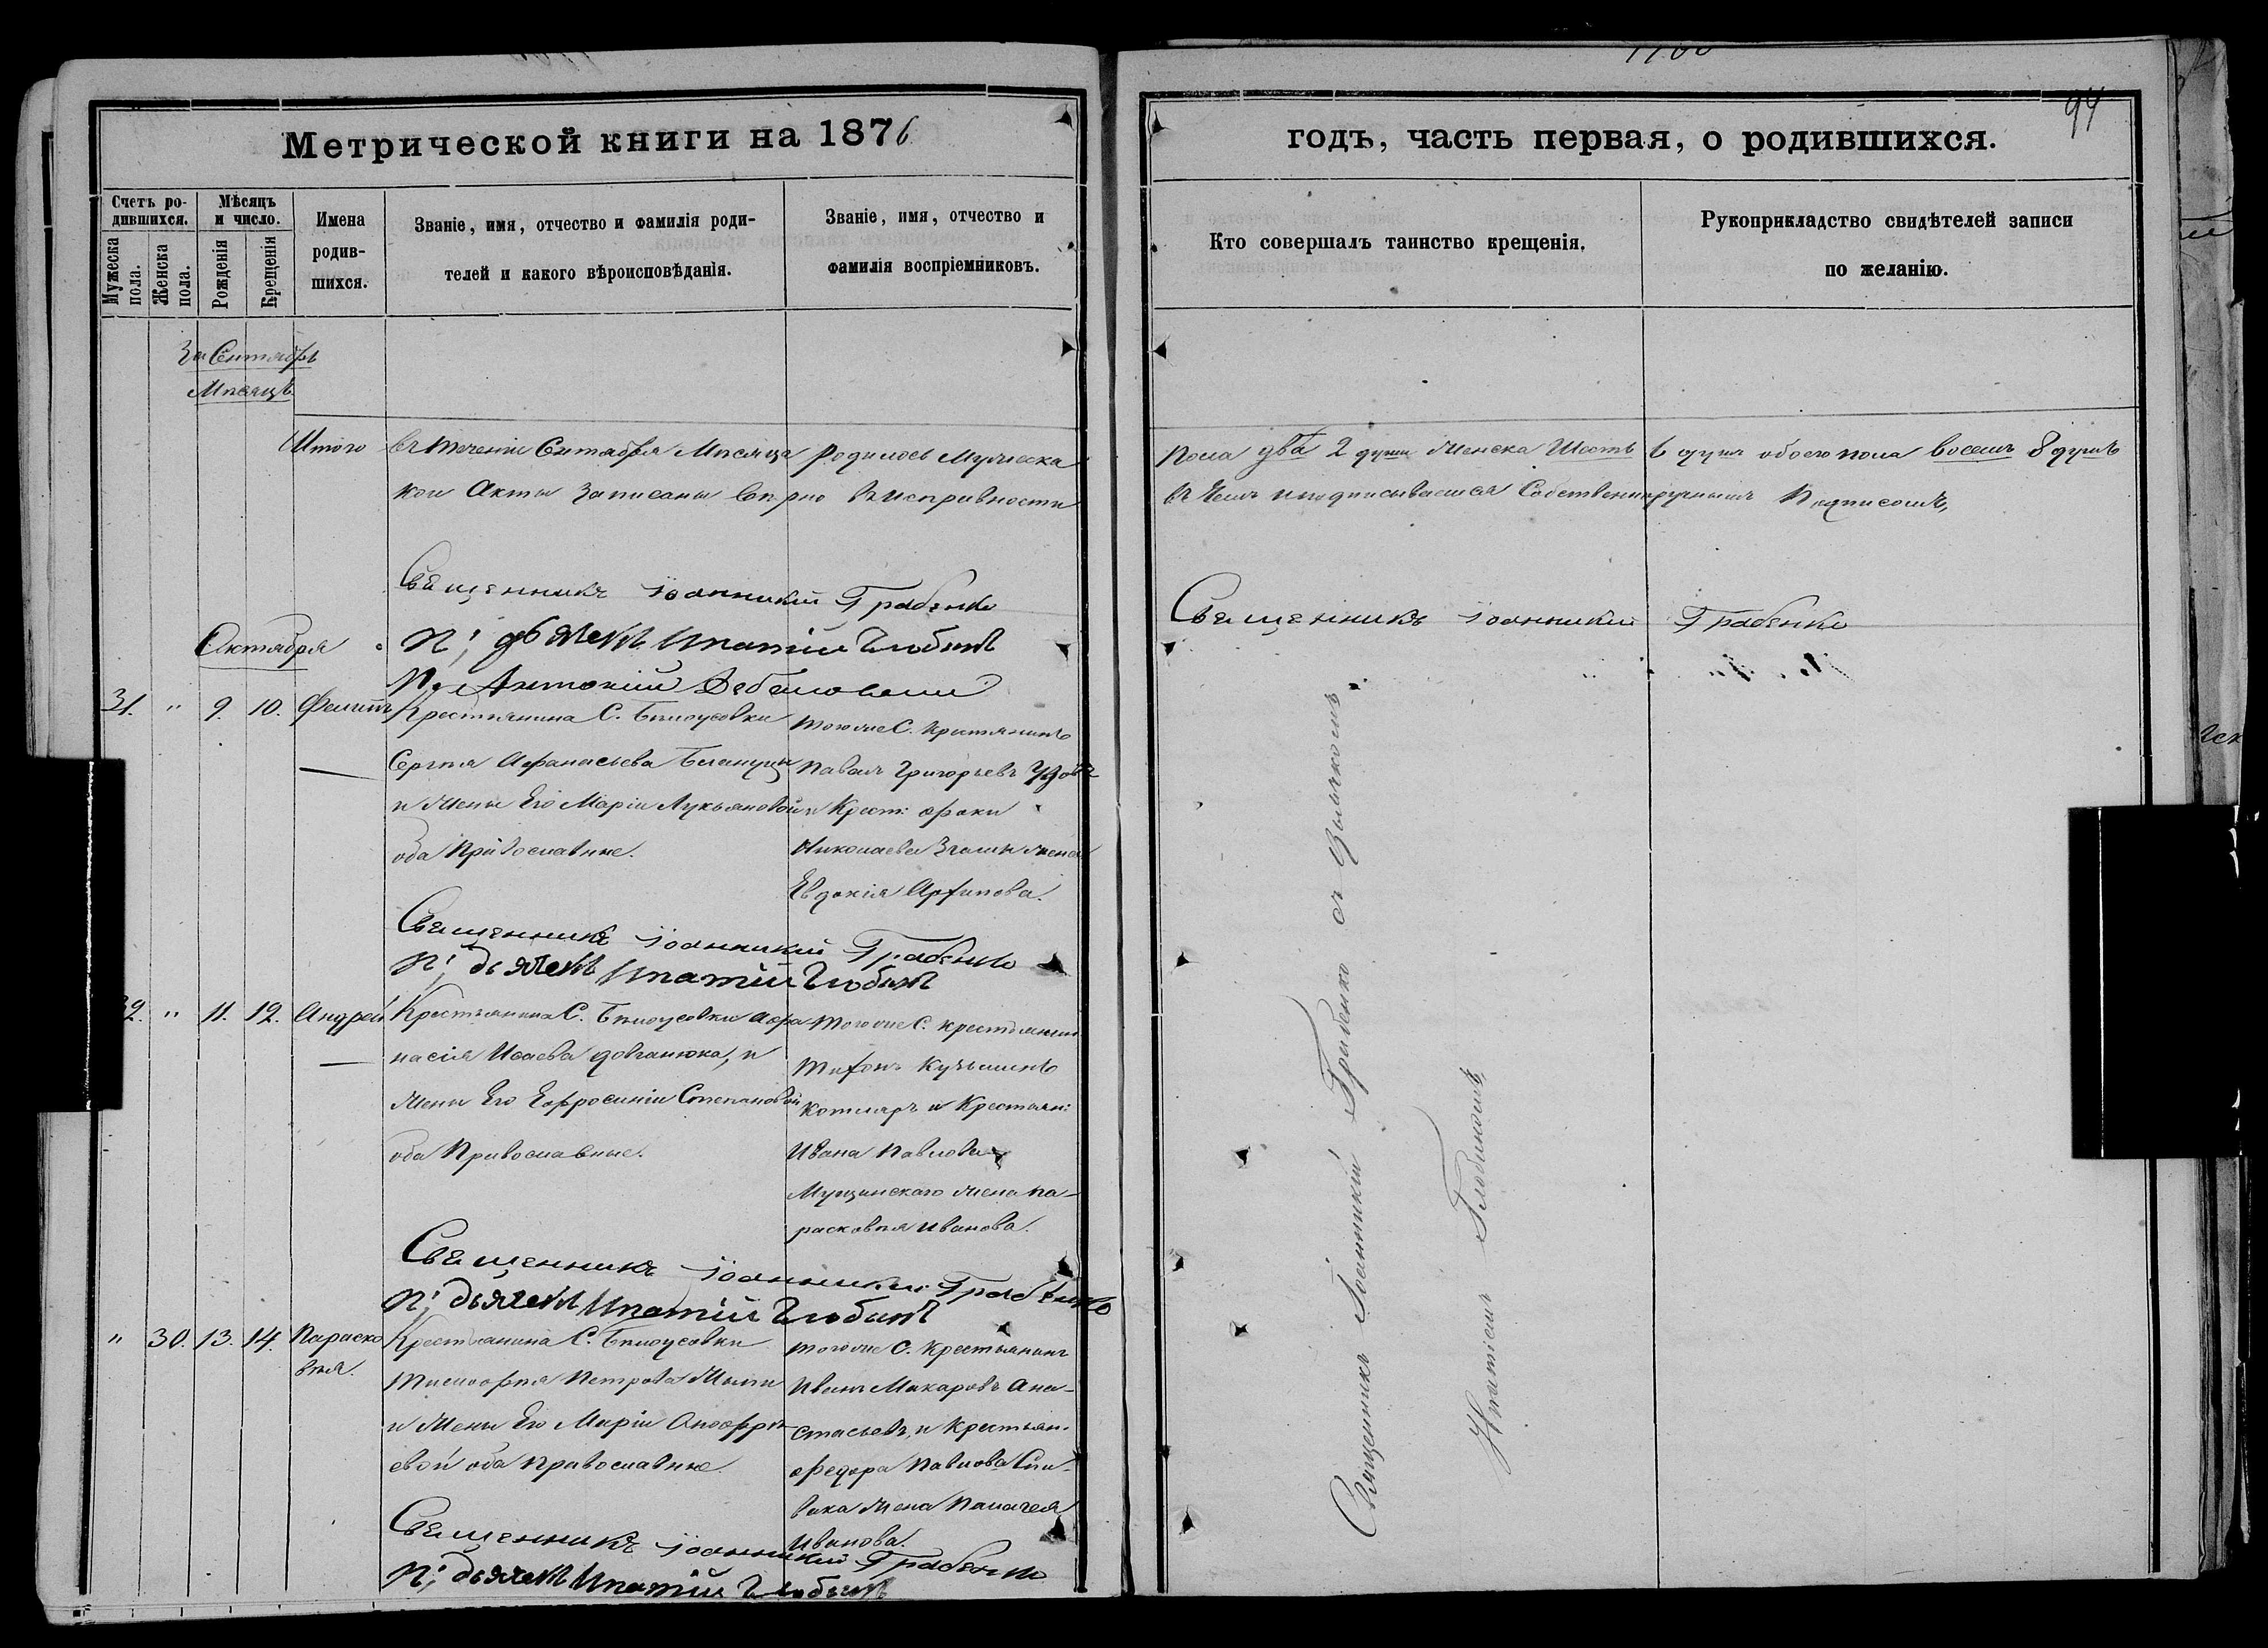 94
Метрической книги на 1876
годъ, часть первая, о родившихся.
Счетъ родившихся.
Мужеска пола.
Женска пола.
Мѣсяцъ и число.
Рожденія
Крещенія
Имена родившихся.
Званіе, имя, отчество и фамилія родителей и какого вѣроисповѣданія.
Званіе, имя, отчество и фамилія воспріемниковъ.
Кто совершалъ таинство крещенія.
Рукоприкладство свидѣтелей записи по желанію.
За Сентябрь
Мѣсяцъ
Итого въ теченіи Сентября Мѣсяца родилось Мужеска пола два 2 души Женска Шесть 6 душъ обоего пола восемь 8 душъ
кои Акты записаны вѣрно въ исправности въ чемъ и подписываемся Собственноручнымъ Подписомъ,
Священникъ Іоанникій Грабенко
Священникъ Іоанникій Грабенко
Октября
дьячекъ Ипатій Глобинъ
Антоній
31. " 9. 10. Филиппъ
Крестьянина С. Бѣлоусовки
Сергѣя Афанасьева
и Жены Его Маріи Лукьяновой
оба Православные.
тогоже С. крестьянинъ
Павелъ Григорьевъ
и Крест: Фоки
Николаева жена
Евдокія Архипова.
Священникъ Іоанникій Грабенко
дьячекъ Ипатій Глобинъ
32. " 11. 12. Андрей
Крестьянина С. Бѣлоусовки Афа-
насія Исаева Довганюка, и
Жены Его Ефросиніи Степановой
оба Православные.
тогоже С. крестьянинъ
Тихонъ Кузьминъ
Котляръ и Крестьян:
Ивана Павлова
Мущинскаго жена Па-
расковья Иванова.
Священникъ Іоанникій Грабенко
дьячекъ Ипатій Глобинъ
" 30. 13. 14. Параско
вѣя.
Крестьянина С. Бѣлоусовки
Тимофѣя Петрова
и Жены Его Маріи Оноофрі-
евой оба православные.
тогоже С. Крестьянинъ
Иванъ Макаровъ Ана-
стасьевъ, и Крестьян.
Федора Павлова Спи-
вака жена Палагея
Иванова.
Священникъ Іоанникій Грабенко
дьячекъ Ипатій Глобинъ
Священникъ Іоанникій Грабенко съ дьячкомъ
Ипатіемъ Глобинымъ